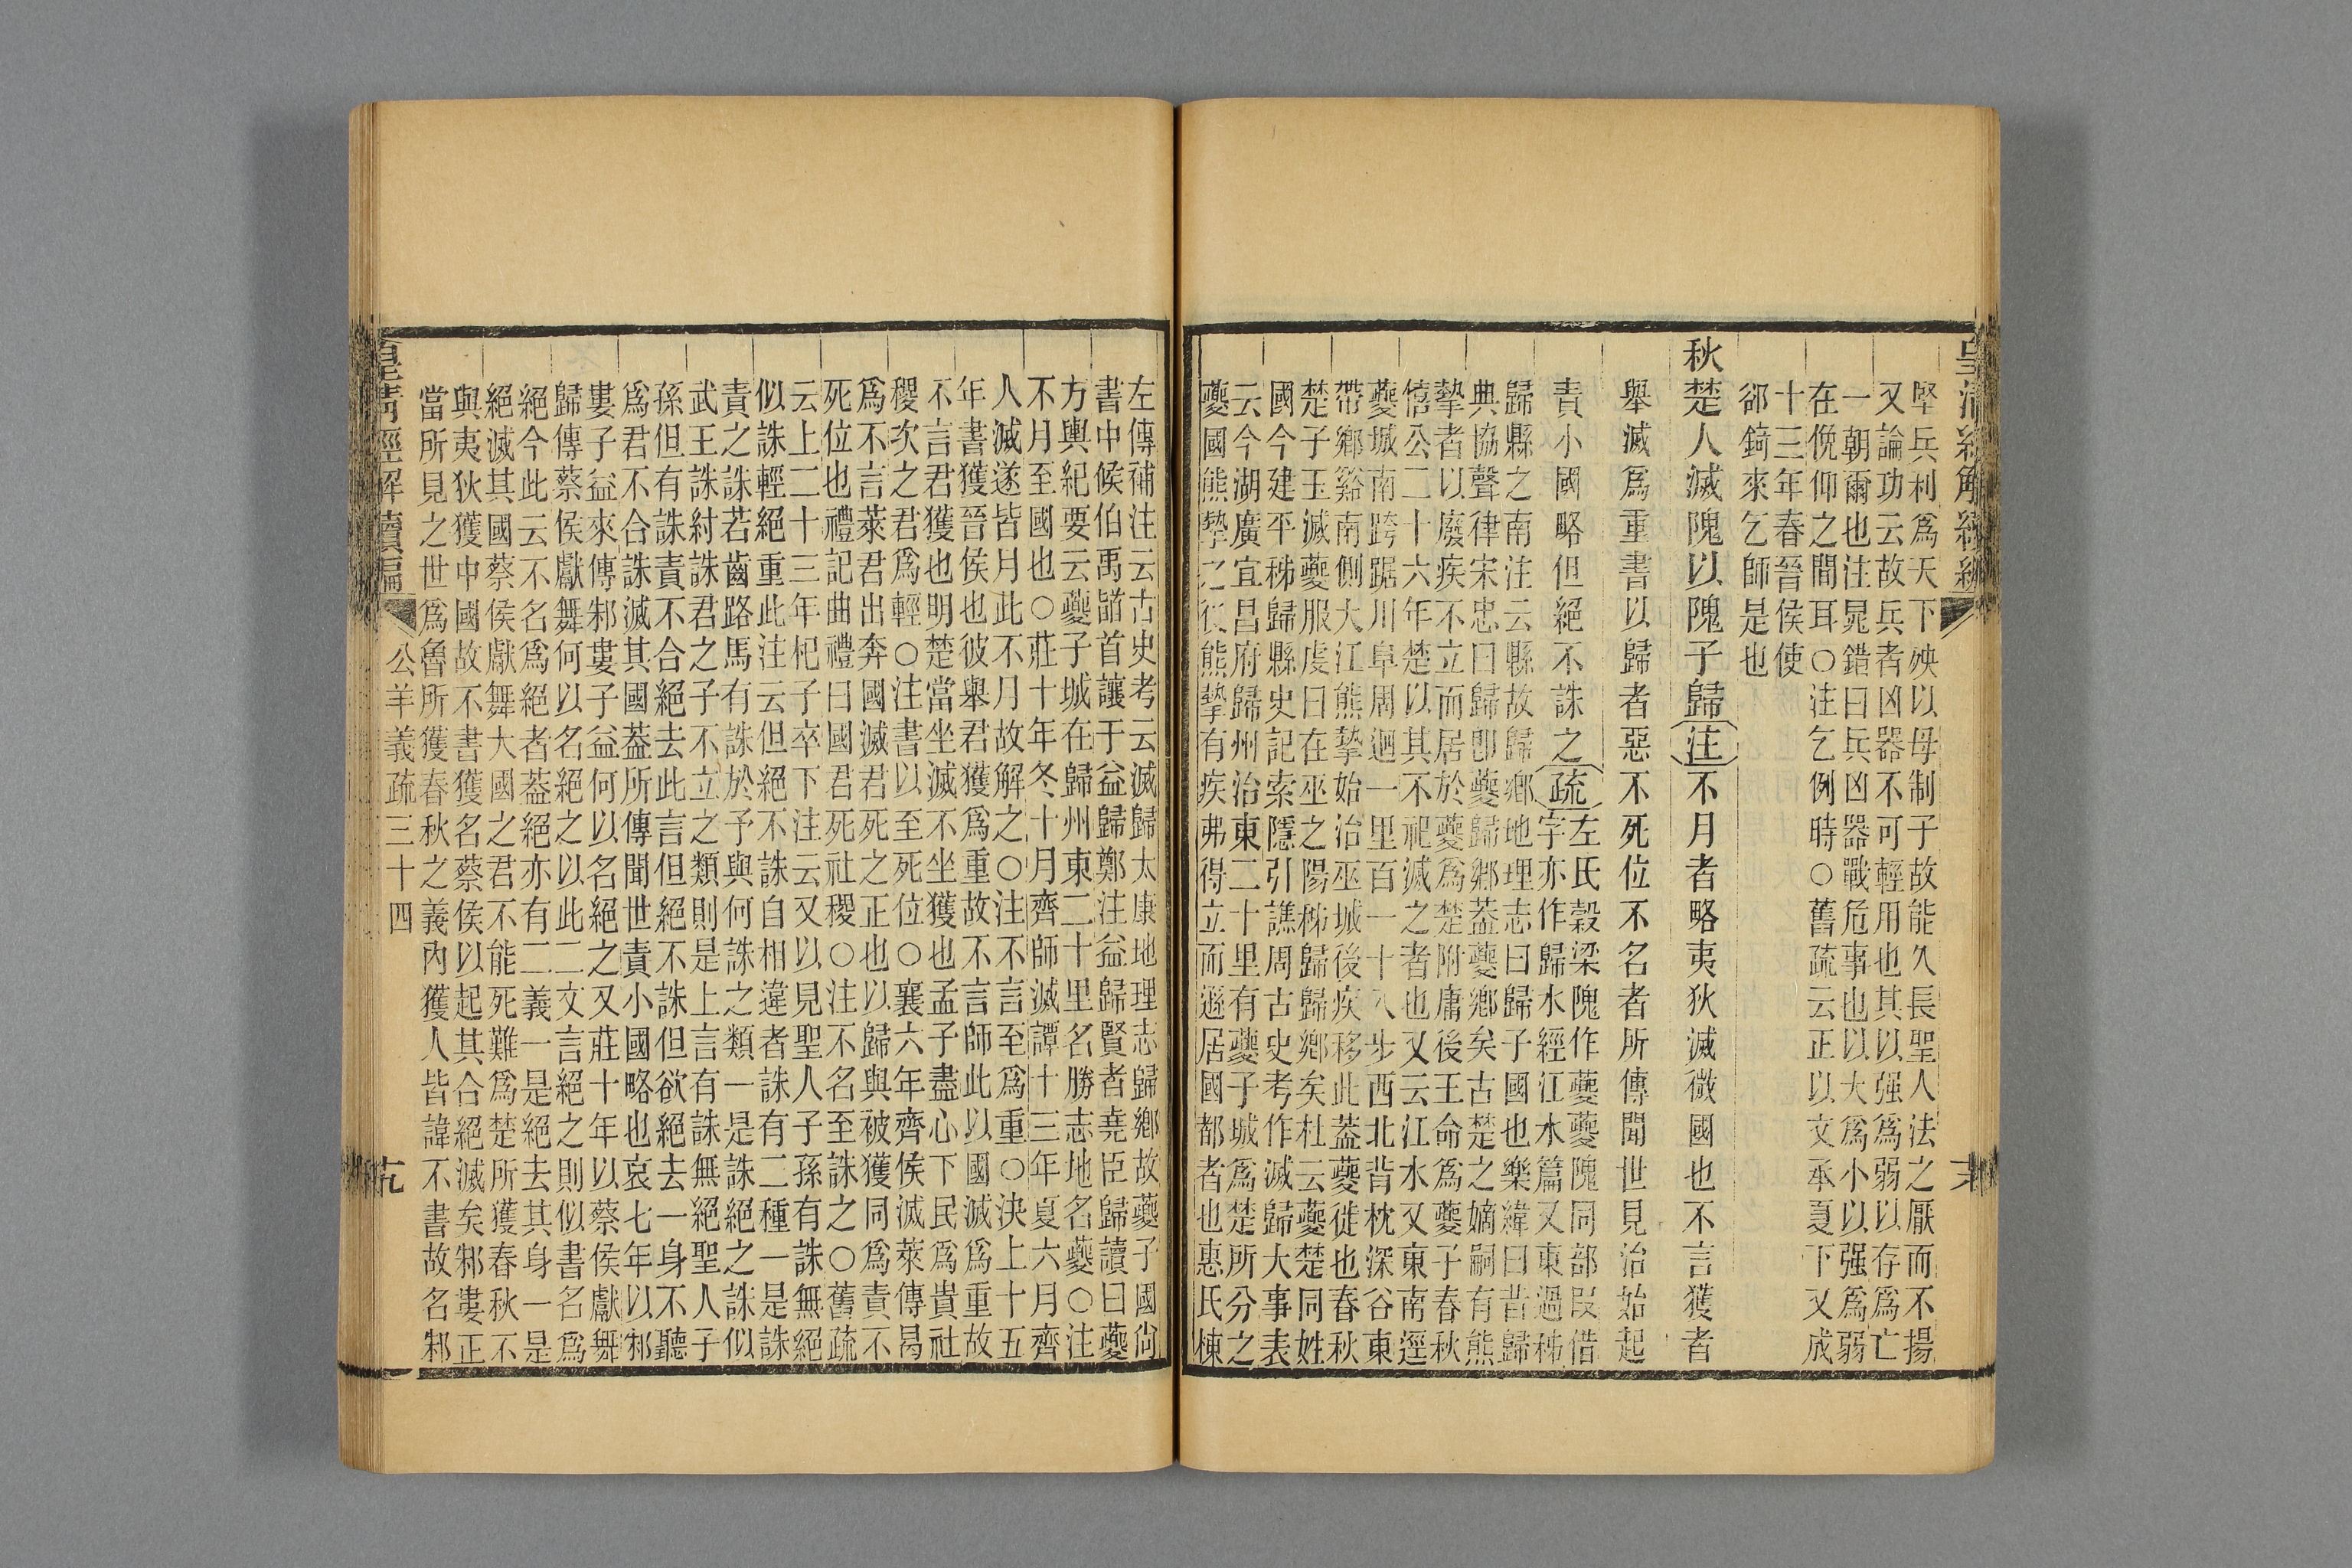 皇清經解續編
堅兵利爲天下殃以母制子故能久長聖人法之厭而不揚
又論功云故兵者凶器不可輕用也其以强爲弱以存爲亡
一朝爾也注晁錯曰兵凶器戰危事也以大爲小以强爲弱
在俛仰之間耳○注乞例時○舊疏云正以文承夏下又成
十三年春晉侯使
郤錡來乞師是也
秋楚人滅隗以隗子歸注不月者略夷狄滅微國也不言獲者
舉滅爲重書以歸者惡不死位不名者所傳聞世見治始起
責小國略但絕不誅之疏左氏穀梁隗作夔夔隗同部叚借
字亦作歸水經江水篇又東過秭
歸縣之南注云縣故歸鄉地理志曰歸子國也樂緯曰昔歸
典協聲律宋忠曰歸卽夔歸鄉葢夔鄉矣古楚之嫡嗣有熊
摯者以廢疾不立而居於夔爲楚附庸後王命爲夔子春秋
僖公二十六年楚以其不祀滅之者也又云江水又東南逕
夔城南跨踞川阜周迴一里百一十八步西北背枕深谷東
帶鄉谿南側大江熊摯始治巫城後疾移此葢夔徙也春秋
楚子玉滅夔服虔曰在巫之陽秭歸歸鄉矣杜云夔楚同姓
國今建平秭歸縣史記索隱引譙周古史考作滅歸大事表
云今湖廣宜昌府歸州治東二十里有夔子城爲楚所分之
夔國熊摯之後熊摯有疾弗得立而遜居國都者也惠氏棟
左傳補注云古史考云滅歸太康地理志歸鄉故夔子國尙
書中候伯禹諸首讓于益歸鄭注益歸賢者堯臣歸讀曰夔
方輿紀要云夔子城在歸州東二十里名勝志地名夔○注
不月至國也○莊十年冬十月齊師滅譚十三年夏六月齊
人滅遂皆月此不月故解之○注不言至爲重○決上十五
年書獲晉侯也彼舉君獲爲重故不言師此以國滅爲重故
不言君獲也明楚當坐滅不坐獲也孟子盡心下民爲貴社
稷次之君爲輕○注書以至死位○襄六年齊侯滅萊傳曷
爲不言萊君出奔國滅君死之正也以歸與被獲同爲責不
死位也禮記曲禮曰國君死社稷○注不名至誅之○舊疏
云上二十三年杞子卒下注云又以見聖人子孫有誅無絕
似誅輕絕重此注云但絕不誅自相違者誅有二種一是誅
責之誅若齒路馬有誅於予與何誅之類一是誅絕之誅似
武王誅紂誅君之子不立之類則是上言有誅無絕聖人子
孫但有誅責不合絕去此言但絕不誅但欲絕去一身不聽
爲君不合誅滅其國葢所傳聞世責小國略也哀七年以邾
婁子益來傳邾婁子益何以名絕之又莊十年以蔡侯獻舞
歸傳蔡侯獻舞何以名絕之以此二文言絕之則似書名爲
絕今此云不名爲絕者葢絕亦有二義一是絕去其身一是
絕滅其國蔡侯獻舞大國之君不能死難爲楚所獲春秋不
與夷狄獲中國故不書獲名蔡侯以起其合絕滅矣邾婁正
當所見之世爲魯所獲春秋之義內獲人皆諱不書故名邾
皇清經解續編 公羊義疏三十四